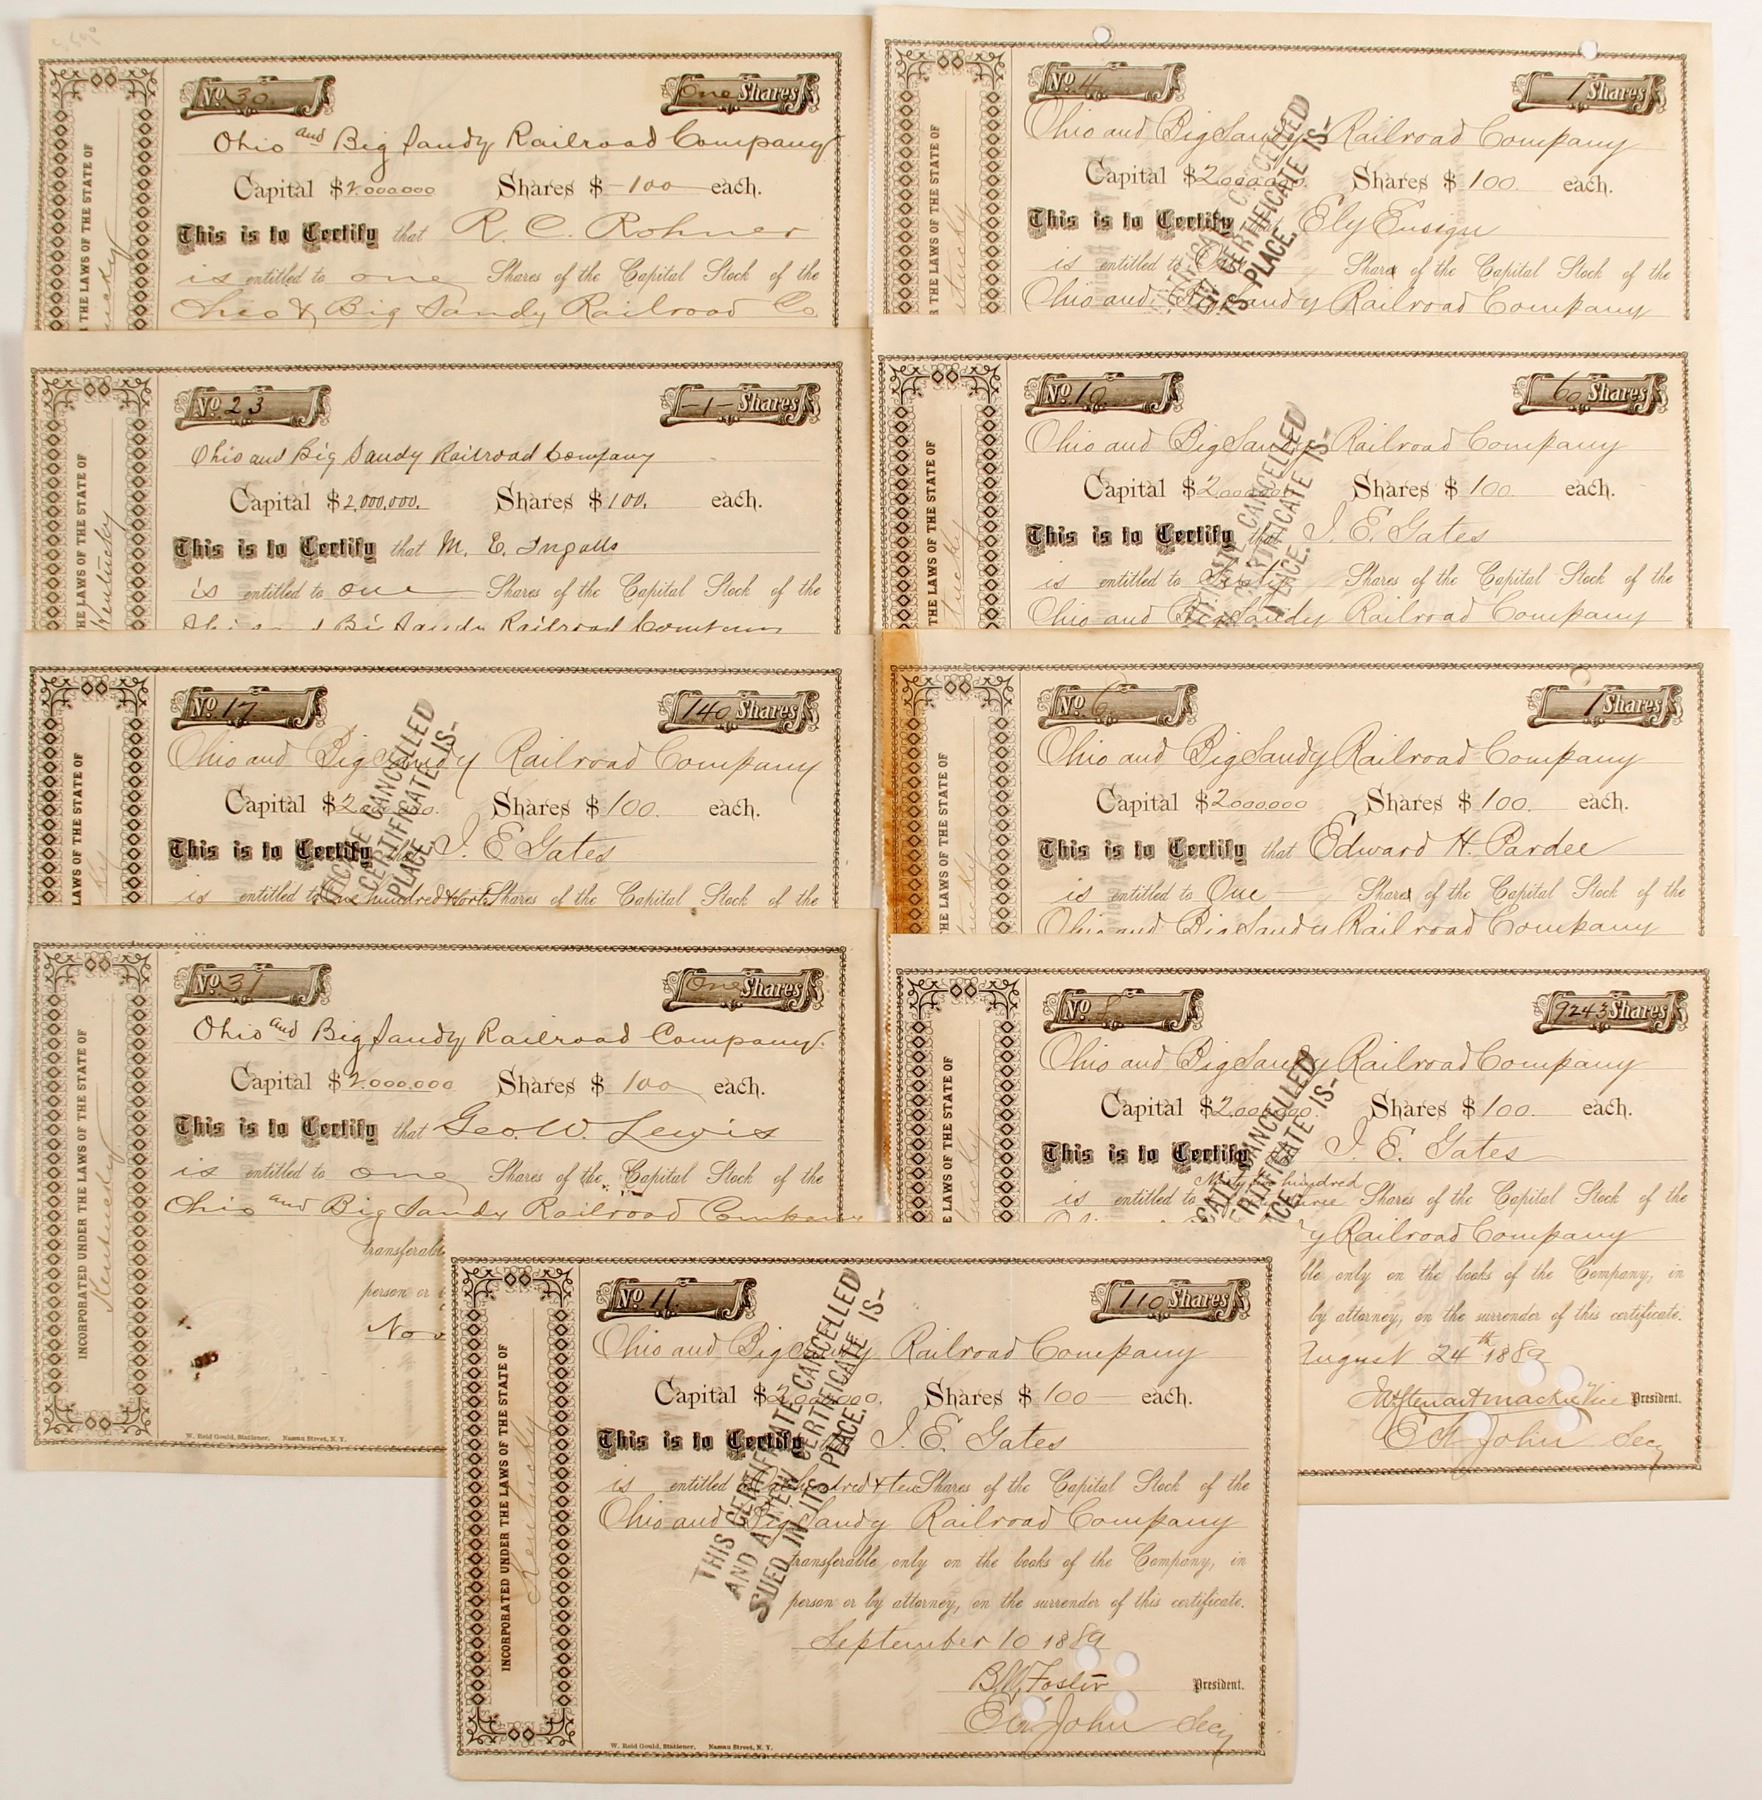 No 30.
One Shares
Ohio and Big Sandy Railroad Company
Capital $2.000000 Shares $ 100 each.
This is to Certify that R. C. Rohner
is entitled to one Shares of the Capital Stock of the
Ohio & Big Sandy Railroad Co
THE LAWS OF THE STATE OF
No 4
1 Shares
Ohio and Big Sandy Railroad Company
Capital $2000000. Shares $ 100. each.
This is to Certify Ely Ensign
is entitled to One Share of the Capital Stock of the
Ohio and Big Sandy Railroad Company
THE LAWS OF THE STATE OF
CANCELLED
CERTIFICATE IS-
ITS PLACE.
No 23
-1- Shares
Ohio and Big Sandy Railroad Company
Capital $2,000,000. Shares $ 100. each.
This is to Certify that M. E. Ingalls
is entitled to one Shares of the Capital Stock of the
Ohio and Big Sandy Railroad Company
THE LAWS OF THE STATE OF
Kentucky
No 10.
60 Shares
Ohio and Big Sandy Railroad Company
Capital $2000000 Shares $ 100. each.
This is to Certify that I. E. Gates
is entitled to Sixty Shares of the Capital Stock of the
Ohio and Big Sandy Railroad Company
THE LAWS OF THE STATE OF
CANCELLED
CERTIFICATE IS-
PLACE.
No 17
140 Shares
Ohio and Big Sandy Railroad Company
Capital $2000000. Shares $ 100. each.
This is to Certify I. E. Gates
is entitled to One hundred & forty Shares of the Capital Stock of the
LAWS OF THE STATE OF
CANCELLED
CERTIFICATE IS-
PLACE.
No 6
1 Shares
Ohio and Big Sandy Railroad Company
Capital $2000000 Shares $ 100. each.
This is to Certify that Edward H. Pardee
is entitled to One Share of the Capital Stock of the
Ohio and Big Sandy Railroad Company
THE LAWS OF THE STATE OF
No 31
One Shares
Ohio and Big Sandy Railroad Company.
Capital $2.000.000 Shares $ 100 each.
This is to Certify that Geo. W. Lewis
is entitled to one Shares of the Capital Stock of the
Ohio and Big Sandy Railroad Company
transferable
person or
Nov
INCORPORATED UNDER THE LAWS OF THE STATE OF
Kentucky
W. Reid Gould, Stationer, Nassau Street, N. Y.
No 8
9243 Shares
Ohio and Big Sandy Railroad Company
Capital $2,000,000. Shares $ 100. each.
This is to Certify I. E. Gates
is entitled to hundred Shares of the Capital Stock of the
y Railroad Company
ble only on the books of the Company, in
by attorney, on the surrender of this certificate.
August 24th 1889
Vice President.
E. F. John Secy
LAWS OF THE STATE OF
CANCELLED
CERTIFICATE IS-
No 11.
110 Shares
Ohio and Big Sandy Railroad Company
Capital $2000000. Shares $ 100 each.
This is to Certify I. E. Gates
is entitled hundred & ten Shares of the Capital Stock of the
Ohio and Big Sandy Railroad Company
transferable only on the books of the Company, in
person or by attorney, on the surrender of this certificate.
September 10 1889
Foster President.
John Secy
INCORPORATED UNDER THE LAWS OF THE STATE OF
Kentucky
THIS CERTIFICATE CANCELLED
AND A NEW CERTIFICATE IS-
SUED IN ITS PLACE.
W. Reid Gould, Stationer, Nassau Street, N. Y.